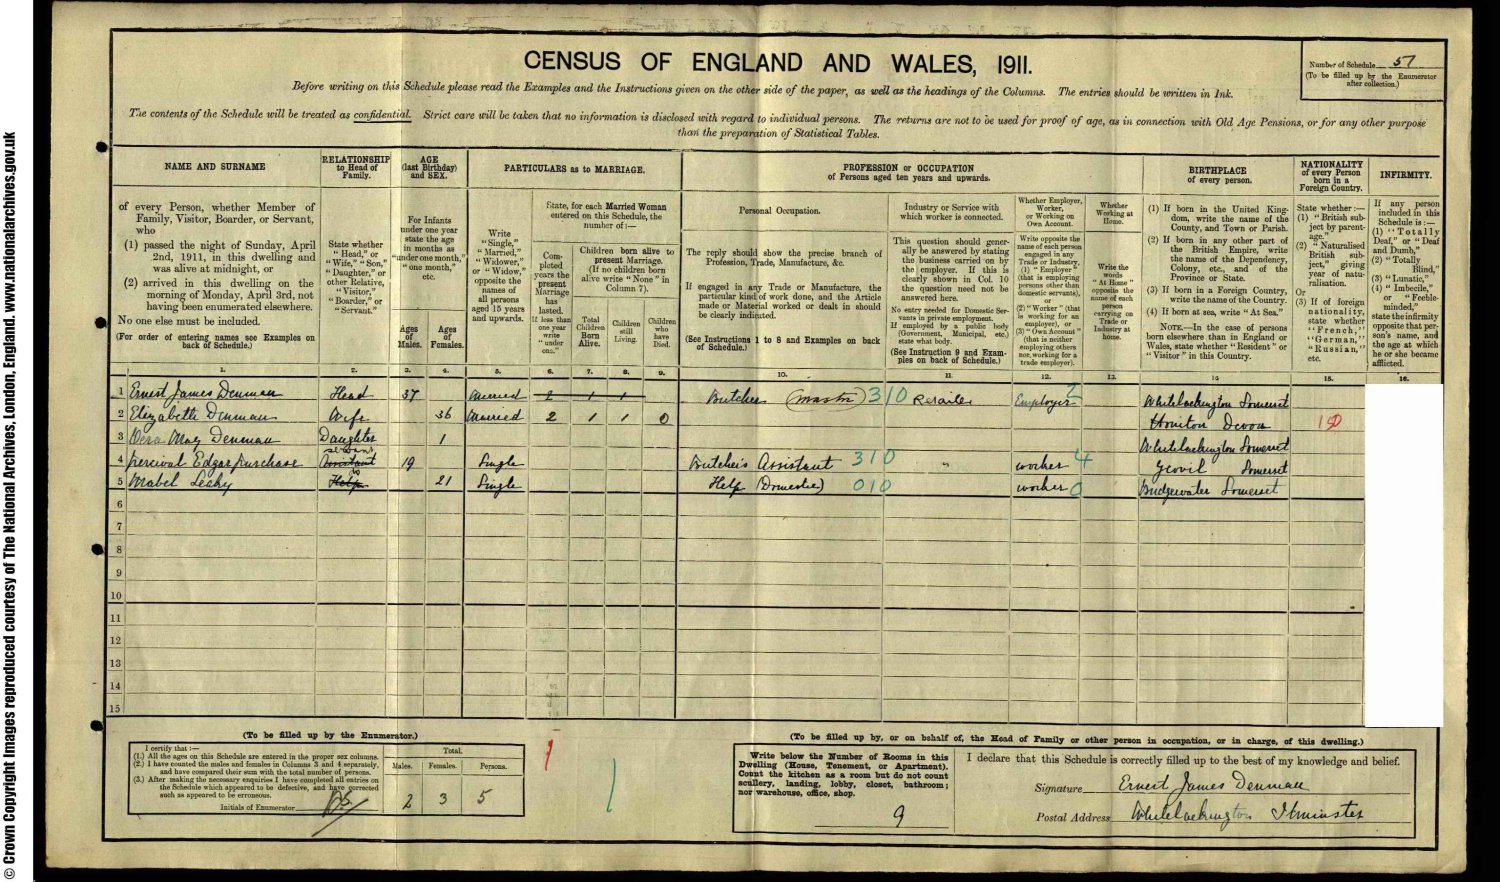 CENSUS OF ENGLAND AND WALES, 1911.
Number of Schedule 57
(To be filled up by the Enumerator
after collection.)
Before writing on this Schedule please read the Examples and the Instructions given on the other side of the paper, as well as the headings of the Columns. The entries should be written in Ink.
The contents of the Schedule will be treated as confidential. Strict care will be taken that no information is disclosed with regard to individual persons. The returns are not to be used for proof of age, as in connection with Old Age Pensions, or for any other purpose
than the preparation of Statistical Tables.
NAME AND SURNAME
of every Person, whether Member of
Family, Visitor, Boarder, or Servant,
who
(1) passed the night of Sunday, April
2nd, 1911, in this dwelling and
was alive at midnight, or
(2) arrived in this dwelling on the
morning of Monday, April 3rd, not
having been enumerated elsewhere.
No one else must be included.
(For order of entering names see Examples on
back of Schedule.)
1.
RELATIONSHIP
to Head of
Family.
State whether
"Head," or
"Wife," "Son,"
"Daughter," or
other Relative,
"Visitor,"
"Boarder," or
"Servant."
2.
AGE
(last Birthday)
and SEX.
For Infants
under one year
state the age
in months as
"under one month,"
"one month,"
etc.
Ages
of
Males.
Ages
of
Females.
3. 4.
PARTICULARS as to MARRIAGE.
Write
"Single,"
"Married,"
"Widower,"
or "Widow,"
opposite the
names of
all persons
aged 15 years
and upwards.
5.
State, for each Married Woman
entered on this Schedule, the
number of:—
Completed
years the
present
Marriage
has
lasted.
If less than
one year
write
"under
one."
6.
Children born alive to
present Marriage.
(If no children born
alive write "None" in
Column 7).
Total
Children
Born
Alive.
Children
still
Living.
Children
who
have
Died.
7. 8. 9.
PROFESSION or OCCUPATION
of Persons aged ten years and upwards.
Personal Occupation.
The reply should show the precise branch of
Profession, Trade, Manufacture, &c.
If engaged in any Trade or Manufacture, the
particular kind of work done, and the Article
made or Material worked or dealt in should
be clearly indicated.
(See Instructions 1 to 8 and Examples on back
of Schedule.)
10.
Industry or Service with
which worker is connected.
This question should gener-
ally be answered by stating
the business carried on by
the employer. If this is
clearly shown in Col. 10
the question need not be
answered here.
No entry needed for Domestic Ser-
vants in private employment.
If employed by a public body
(Government, Municipal, etc.)
state what body.
(See Instruction 9 and Exam-
ples on back of Schedule.)
11.
Whether Employer,
Worker,
or Working on
Own Account.
Write opposite the
name of each person
engaged in any
Trade or Industry,
(1) "Employer"
(that is employing
persons other than
domestic servants),
or
(2) "Worker" (that
is working for an
employer), or
(3) "Own Account"
(that is neither
employing others
nor working for a
trade employer).
12.
Whether
Working at
Home.
Write the
words
"At Home"
opposite the
name of each
person
carrying on
Trade or
Industry at
home.
13.
BIRTHPLACE
of every person.
(1) If born in the United King-
dom, write the name of the
County, and Town or Parish.
(2) If born in any other part of
the British Empire, write
the name of the Dependency,
Colony, etc., and of the
Province or State.
(3) If born in a Foreign Country,
write the name of the Country.
(4) If born at sea, write "At Sea."
NOTE.—In the case of persons
born elsewhere than in England or
Wales, state whether "Resident" or
"Visitor" in this Country.
14
NATIONALITY
of every Person
born in a
Foreign Country.
State whether:—
(1) "British sub-
ject by parent-
age."
(2) "Naturalised
British sub-
ject," giving
year of natu-
ralisation.
Or
(3) If of foreign
nationality,
state whether
"French,"
"German,"
"Russian,"
etc.
15.
INFIRMITY.
If any person
included in this
Schedule is:—
(1) "Totally
Deaf," or "Deaf
and Dumb,"
(2) "Totally
Blind,"
(3) "Lunatic,"
(4) "Imbecile,"
or "Feeble-
minded,"
state the infirmity
opposite that per-
son's name, and
the age at which
he or she became
afflicted.
16.
1 Ernest James Denman Head 37 Married 2 1 1 Butcher (Master) 310 Retailer Employer 2 Whitelackington Somerset
2 Elizabeth Denman Wife 36 Married 2 1 1 0 Honiton Devon
3 Vera May Denman Daughter 1 Whitelackington Somerset
4 Percival Edgar Purchase Servant Assistant 19 Single Butcher's Assistant 310 " worker 4 Yeovil Somerset
5 Mabel Leahy Help 21 Single Help (Domestic) 010 worker 0 Bridgewater Somerset
6
7
8
9
10
11
12
13
14
15
(To be filled up by the Enumerator.)
I certify that:—
(1.) All the ages on this Schedule are entered in the proper sex columns.
(2.) I have counted the males and females in Columns 3 and 4 separately,
and have compared their sum with the total number of persons.
(3.) After making the necessary enquiries I have completed all entries on
the Schedule which appeared to be defective, and have corrected
such as appeared to be erroneous.
Initials of Enumerator
Total.
Males. Females. Persons.
2 3 5
(To be filled up by, or on behalf of, the Head of Family or other person in occupation, or in charge, of this dwelling.)
Write below the Number of Rooms in this
Dwelling (House, Tenement, or Apartment).
Count the kitchen as a room but do not count
scullery, landing, lobby, closet, bathroom;
nor warehouse, office, shop.
9
I declare that this Schedule is correctly filled up to the best of my knowledge and belief.
Signature Ernest James Denman
Postal Address Whitelackington Ilminster
© Crown Copyright Images reproduced courtesy of The National Archives, London, England. www.nationalarchives.gov.uk